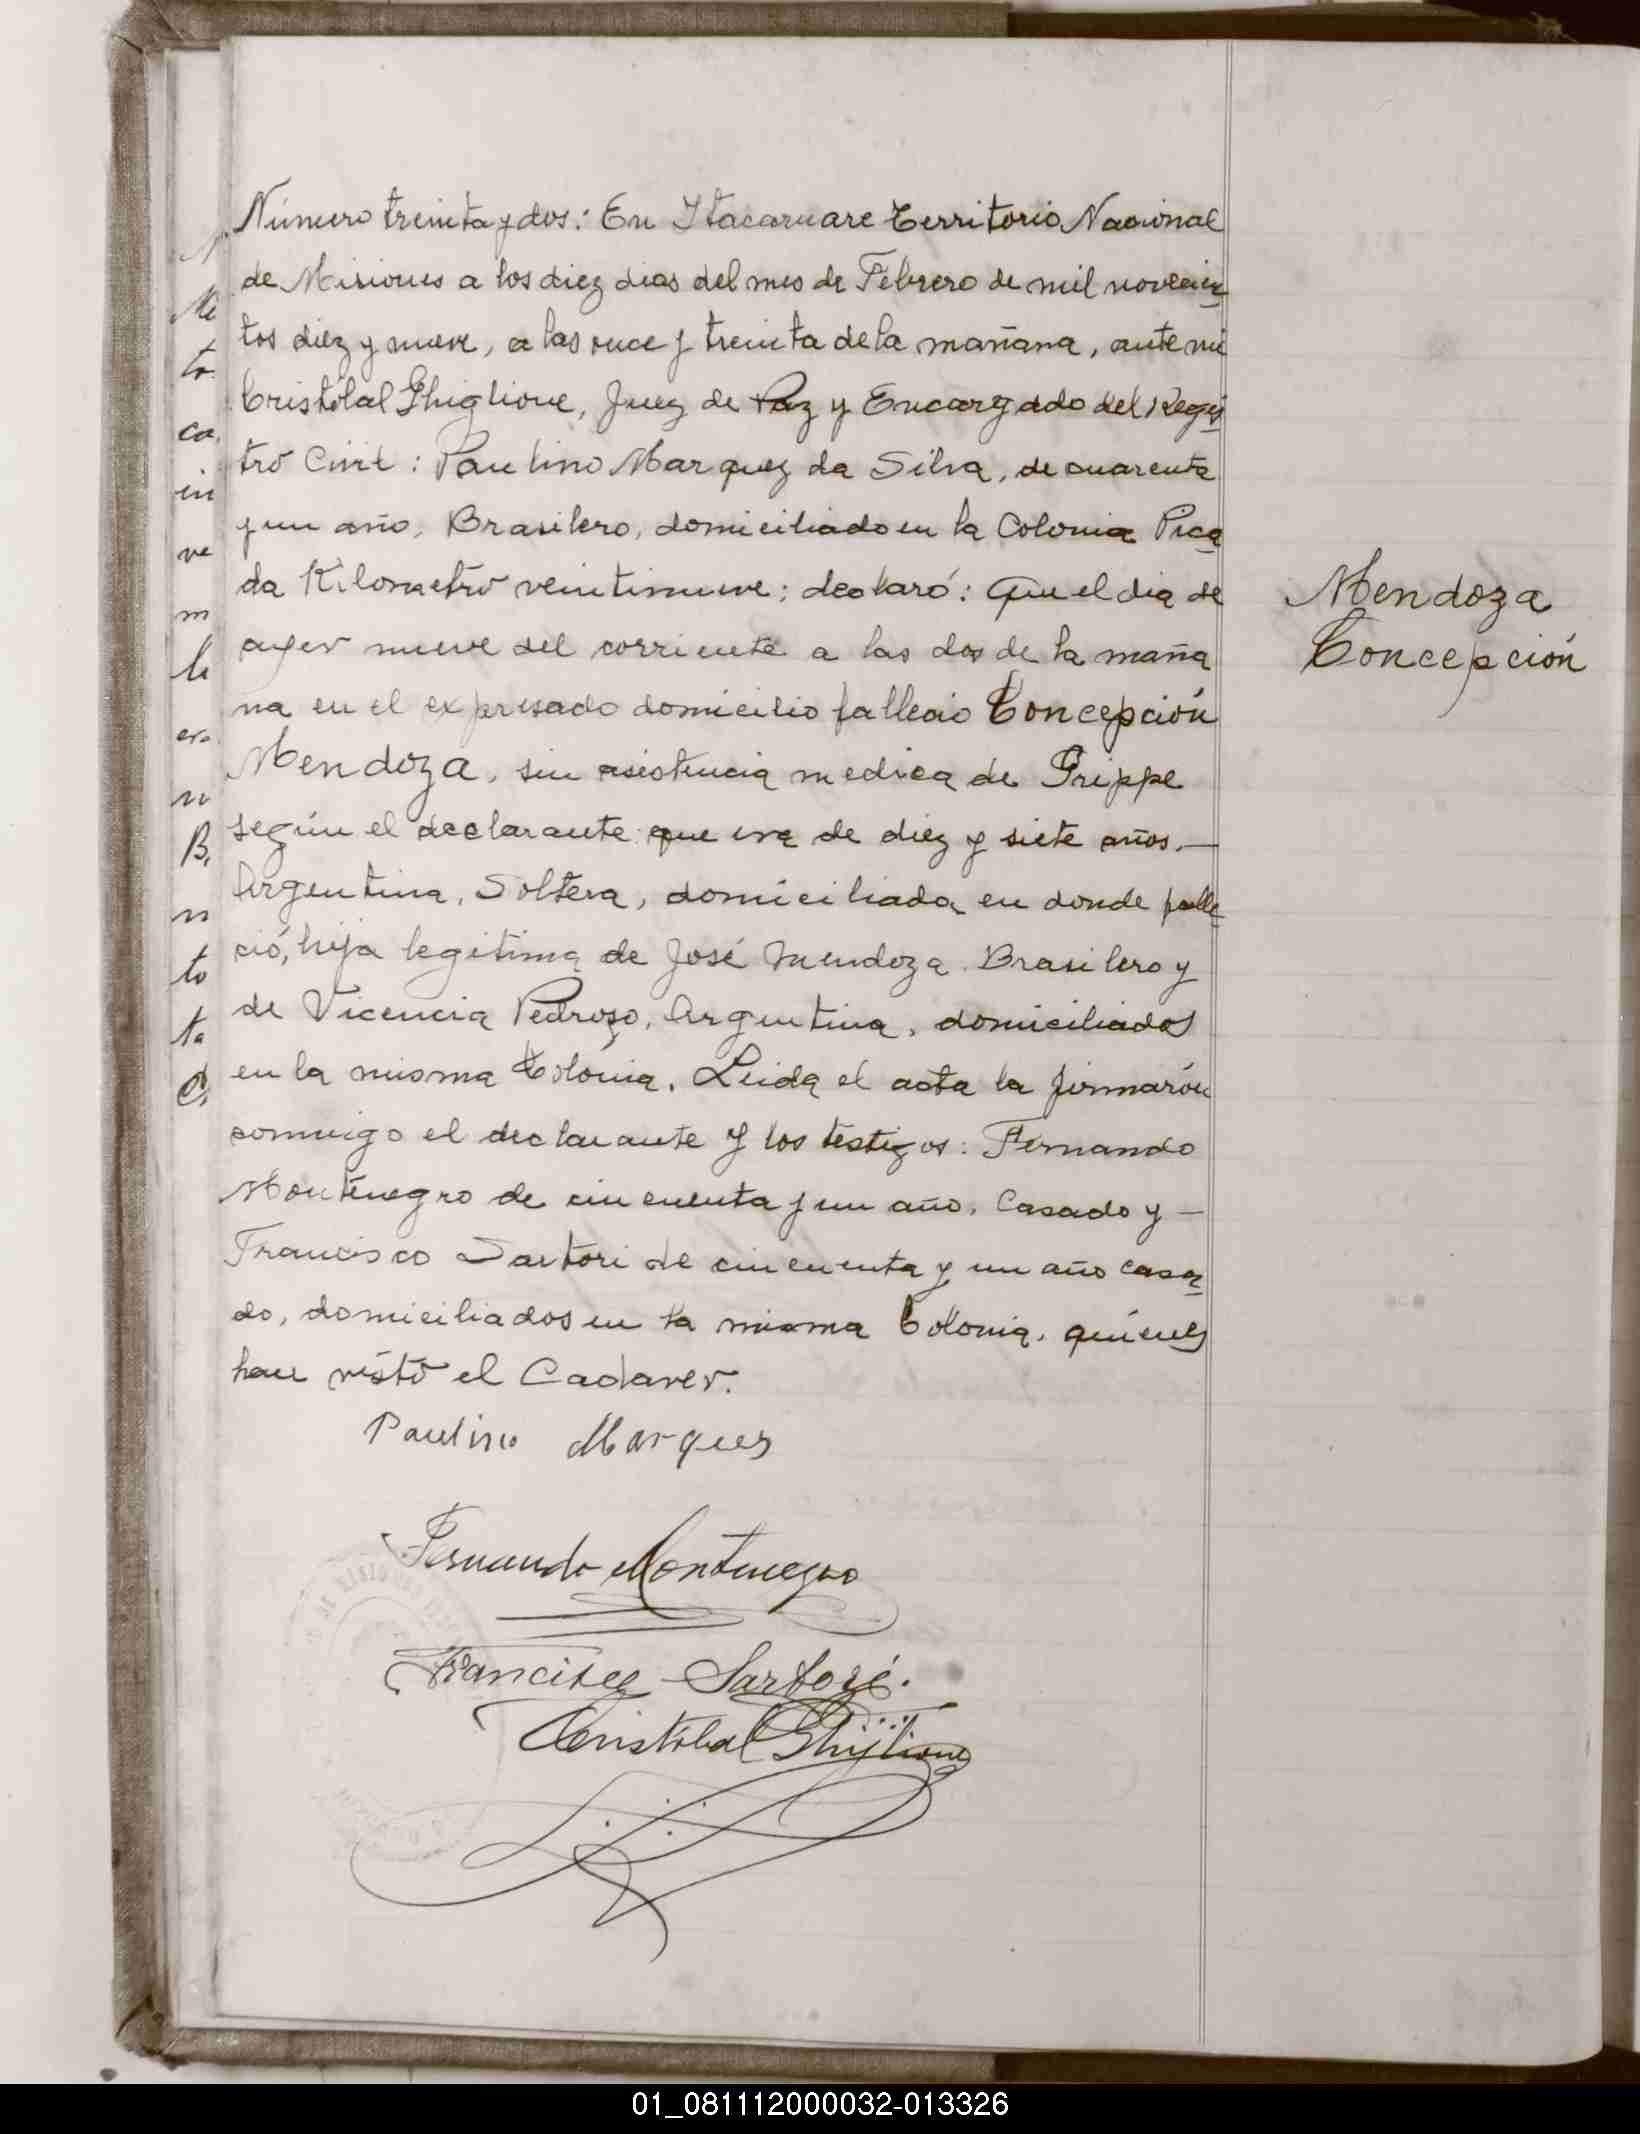 Número treinta y dos: En Itacaruare Territorio Nacional
de Misiones a los diez dias del mes de Febrero de mil novecien
tos diez y nueve, a las once y treinta de la mañana, ante mi
Cristóbal Ghiglione, Juez de Paz y Encargado del Regis
tro Civil: Paulino Marquez da Silva, de cuarenta
y un año, Brasilero, domiciliado en la Colonia Pica
da Kilometro veintinueve; declaró: Que el dia de
ayer nueve del corriente a las dos de la maña
na en el expresado domicilio fallecio Concepción
Mendoza, sin asistencia medica de Grippe
según el declarante que era de diez y siete años.—
Argentina, Soltera, domiciliada en donde falle
ció, hija legitima de José Mendoza Brasilero y
de Vicencia Pedrozo, Argentina, domiciliados
en la misma Colonia. Leida el acta la firmarón
conmigo el declarante y los testigos: Fernando
Montenegro de cincuenta y un año, Casado y —
Francisco Sartori de cincuenta y un año casa
do, domiciliados en la misma Colonia, quienes
han visto el Cadaver.
Mendoza
Concepción
Paulino Marques
Fernando Montenegro
Francisco Sartori.
Cristóbal Ghiglione
01_081112000032-013326